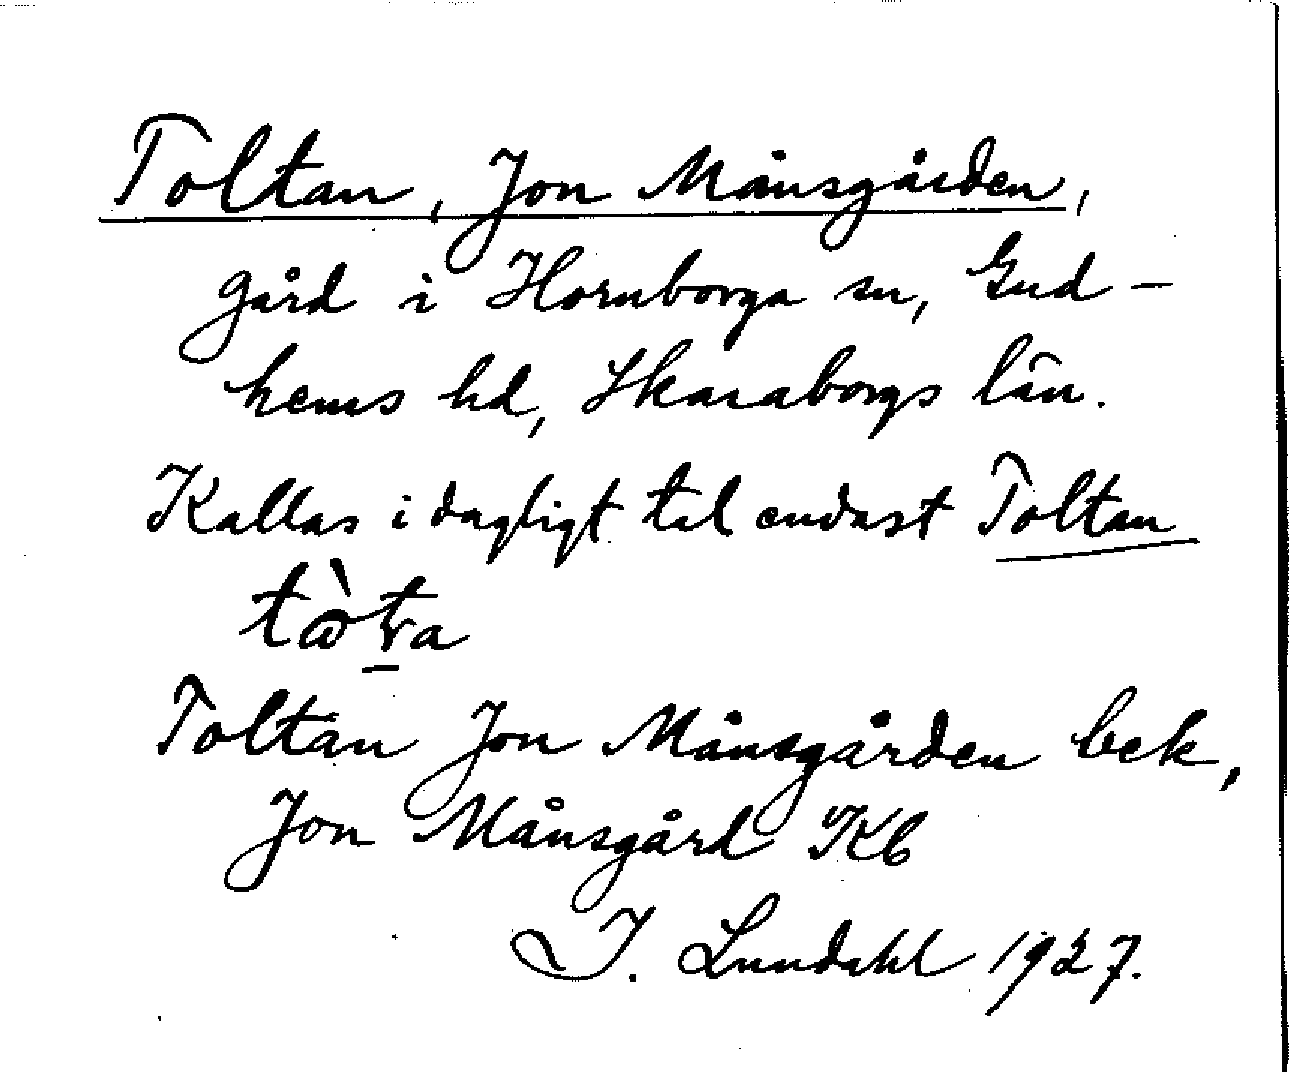 Toltan, Jon Månsgården,
gård i Hornborga sn, Gud-
hems hd, Skaraborgs län.
Kallas i dagligt tal endast Toltan
Toltan Jon Månsgården bek,
Jon Månsgård Kb
I. Lundahl 1927.